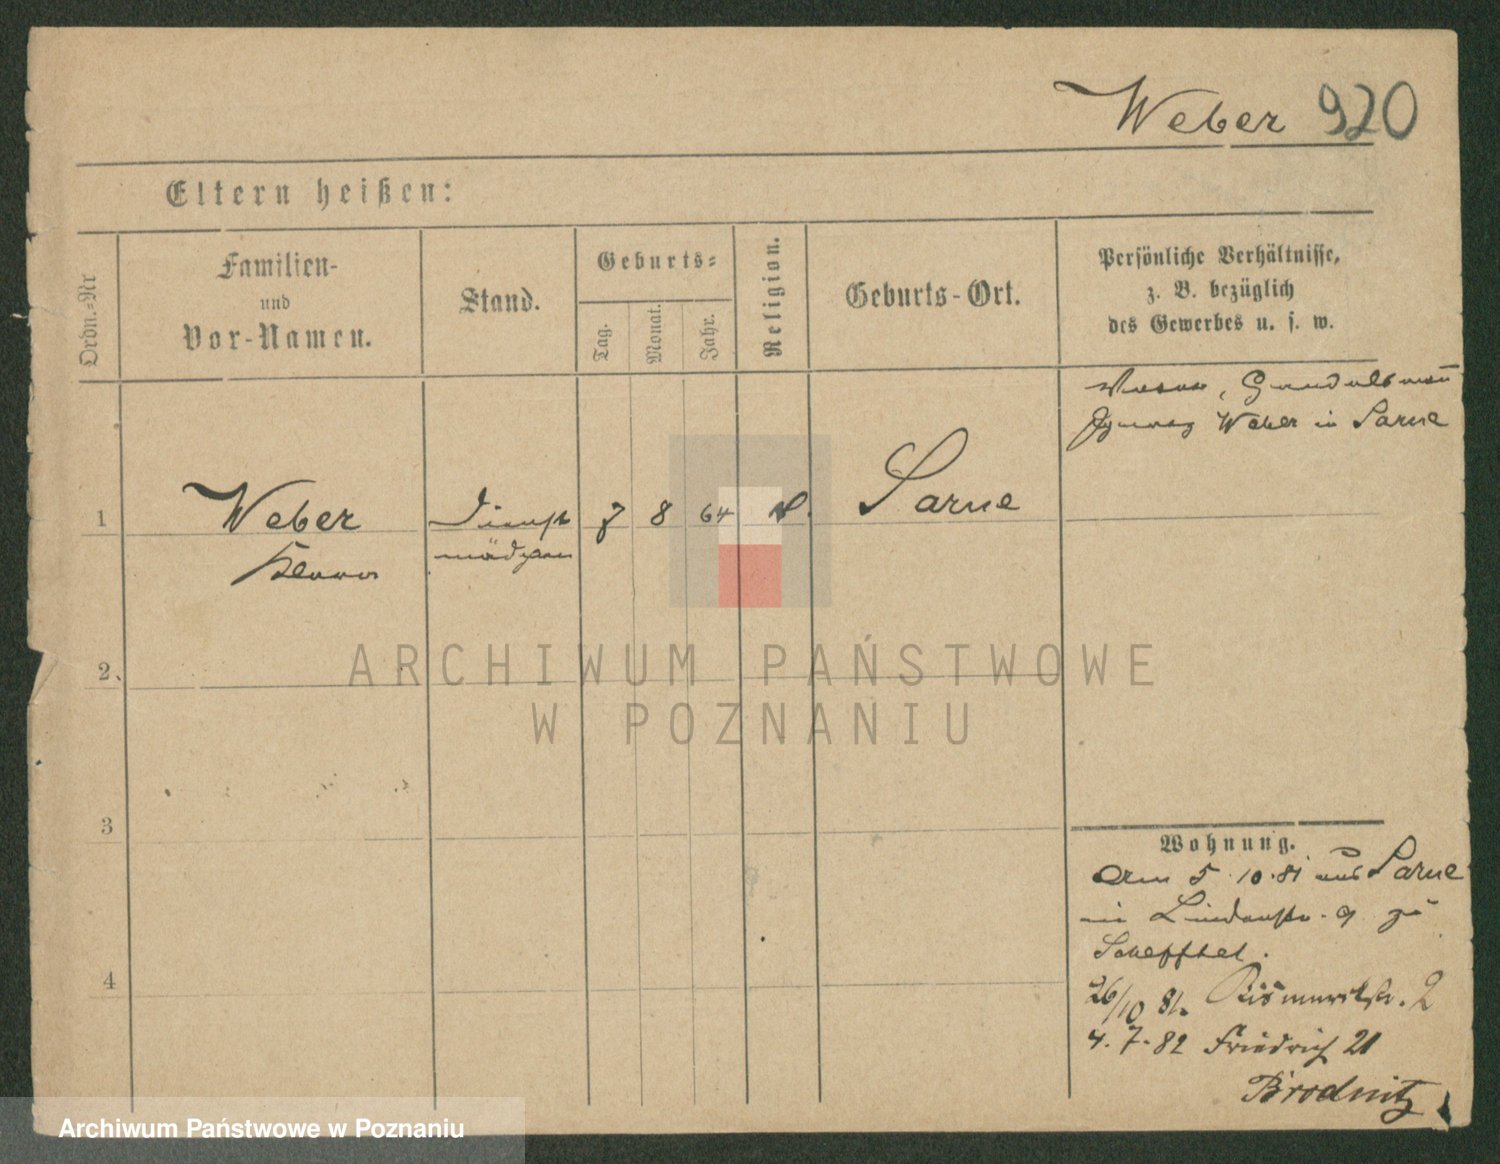 Weber 920
Eltern heißen:
Ordn.-Nr
Familien-
und
Vor-Namen.
Stand.
Geburts-
Tag.
Monat.
Jahr.
Religion.
Geburts-Ort.
Persönliche Verhältnisse,
z. B. bezüglich
des Gewerbes u. s. w.
Vater, Handelsmann
Weber in Sarne
1
Weber
Dienst
8
64
Sarne
mädchen
2
3
4
ARCHIWUM PAŃSTWOWE
W POZNANIU
Wohnung.
Am 5.10.81 aus Sarne
in Lindenstr. 9 zu
26/10 81. Bismarckstr. 2
4.7.82 Friedrich 21
Brodnitz
Archiwum Państwowe w Poznaniu